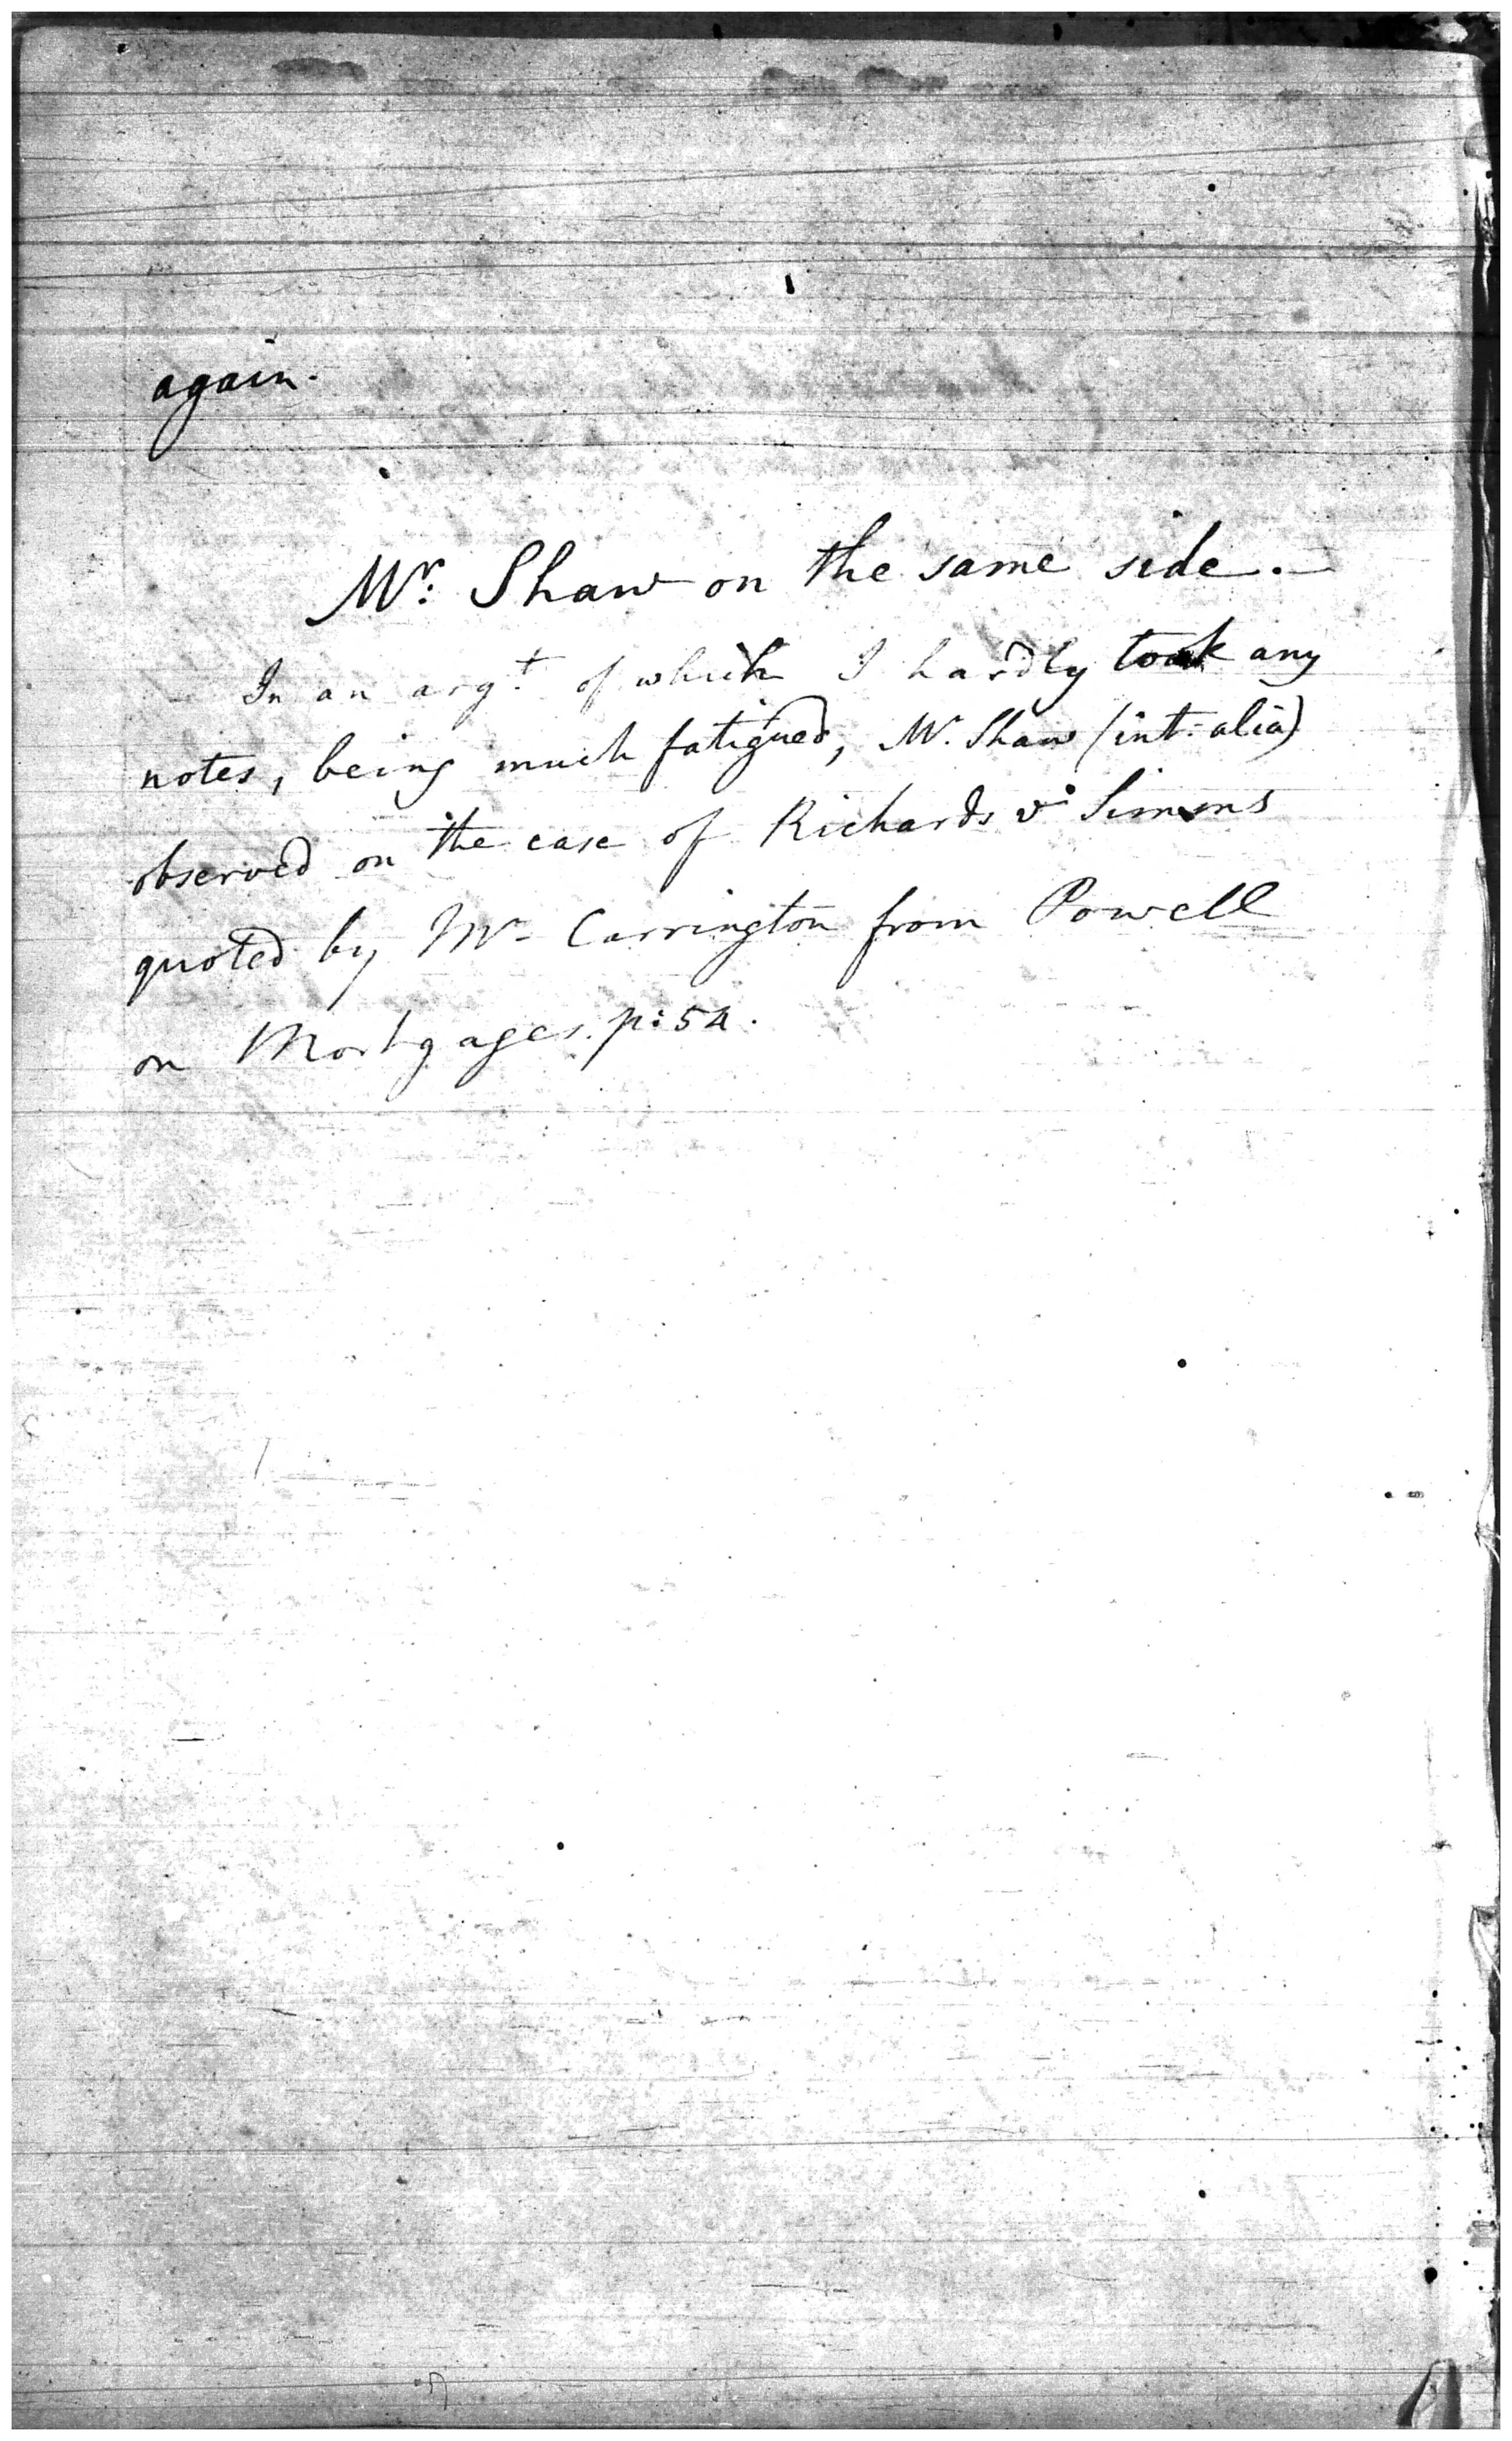 again.
Mr. Shaw on the same side.—
In an argt. of which I hardly took any
notes, being much fatigued, Mr. Shaw (int: alia)
observed on the case of Richards vs Simms
quoted by Mr. Carrington from Powell
on Mortgages. p: 54.